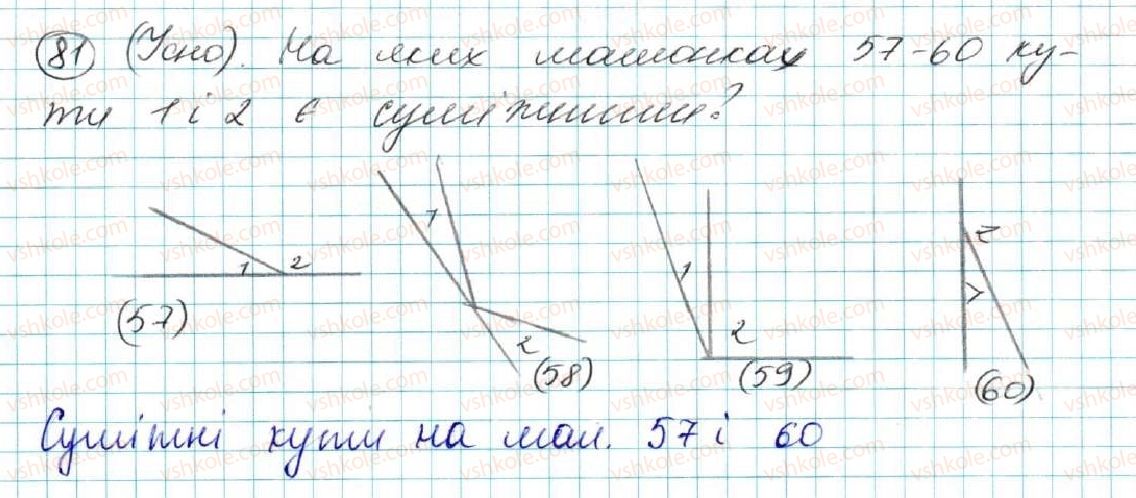 81 (Усно). На яких малюнках 57-60 ку-
ти 1 і 2 є суміжними?
1 2
(57)
1
2
(58)
1
2
(59)
2
1
(60)
Суміжні кути на мал. 57 і 60